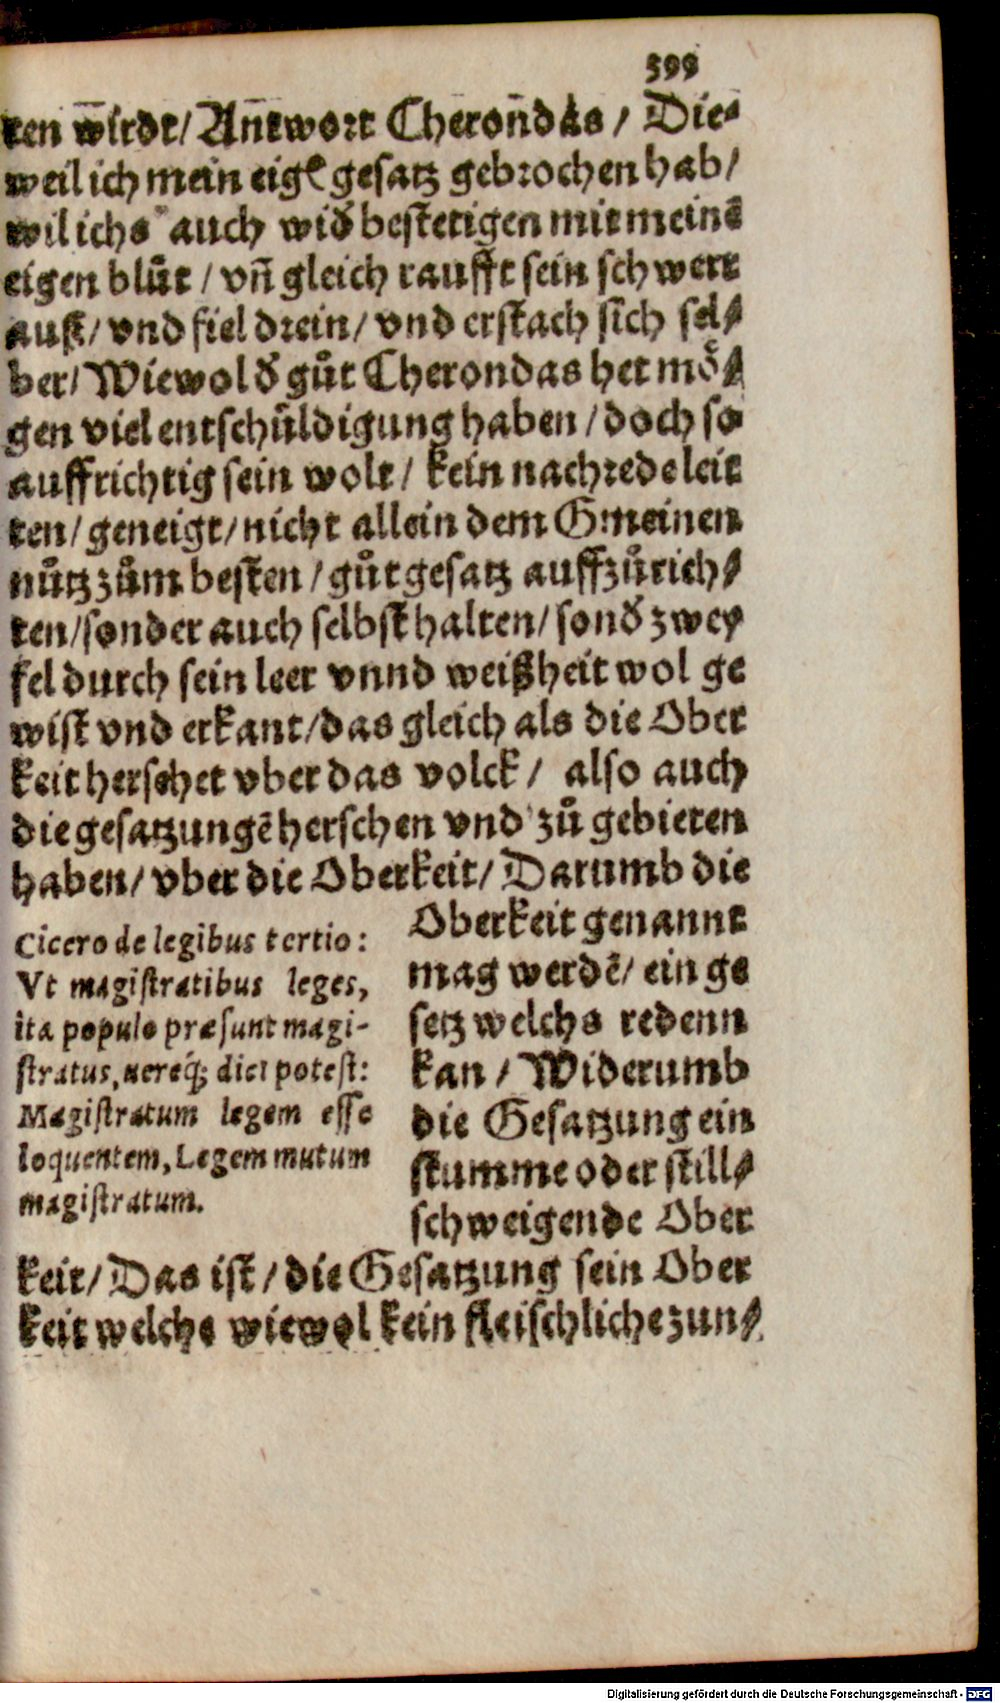 599
ten wirdt/ Antwort Cherondas / Die⸗
weil ich mein eigẽ gesatz gebrochen hab/
wil ichs auch wid̛ bestetigen mit meinē
eigen blůt / vñ gleich raufft sein schwert
auß/ vnd fiel drein/ vnd erstach sich sel⸗
ber/ Wiewol d̛ gůt Cherondas het mö⸗
gen viel entschüldigung haben / doch so
auffrichtig sein wolt / kein nachrede leit
ten/ geneigt/ nicht allein dem Gmeinen
nůtz zům besten / gůt gesatz auffzůrich⸗
ten/ sonder auch selbst halten/ sond̛ zwey
fel durch sein leer vnnd weißheit wol ge
wist vnd erkant/ das gleich als die Ober
keit herschet vber das volck / also auch
die gesatzungē herschen vnd zů gebieten
haben/ vber die Oberkeit/ Darumb die
Oberkeit genannt
mag werdē/ ein ge
setz welchs redenn
kan / Widerumb
die Gesatzung ein
stumme oder still⸗
schweigende Ober
Cicero de legibus tertio:
Vt magistratibus leges,
ita populo præsunt magi-
stratus, uereq́; dici potest:
Magistratum legem esse
loquentem, Legem mutum
magistratum.
keit/ Das ist / die Gesatzung sein Ober
keit welche wiewol kein fleischliche zun⸗
Digitalisierung gefördert durch die Deutsche Forschungsgemeinschaft - DFG